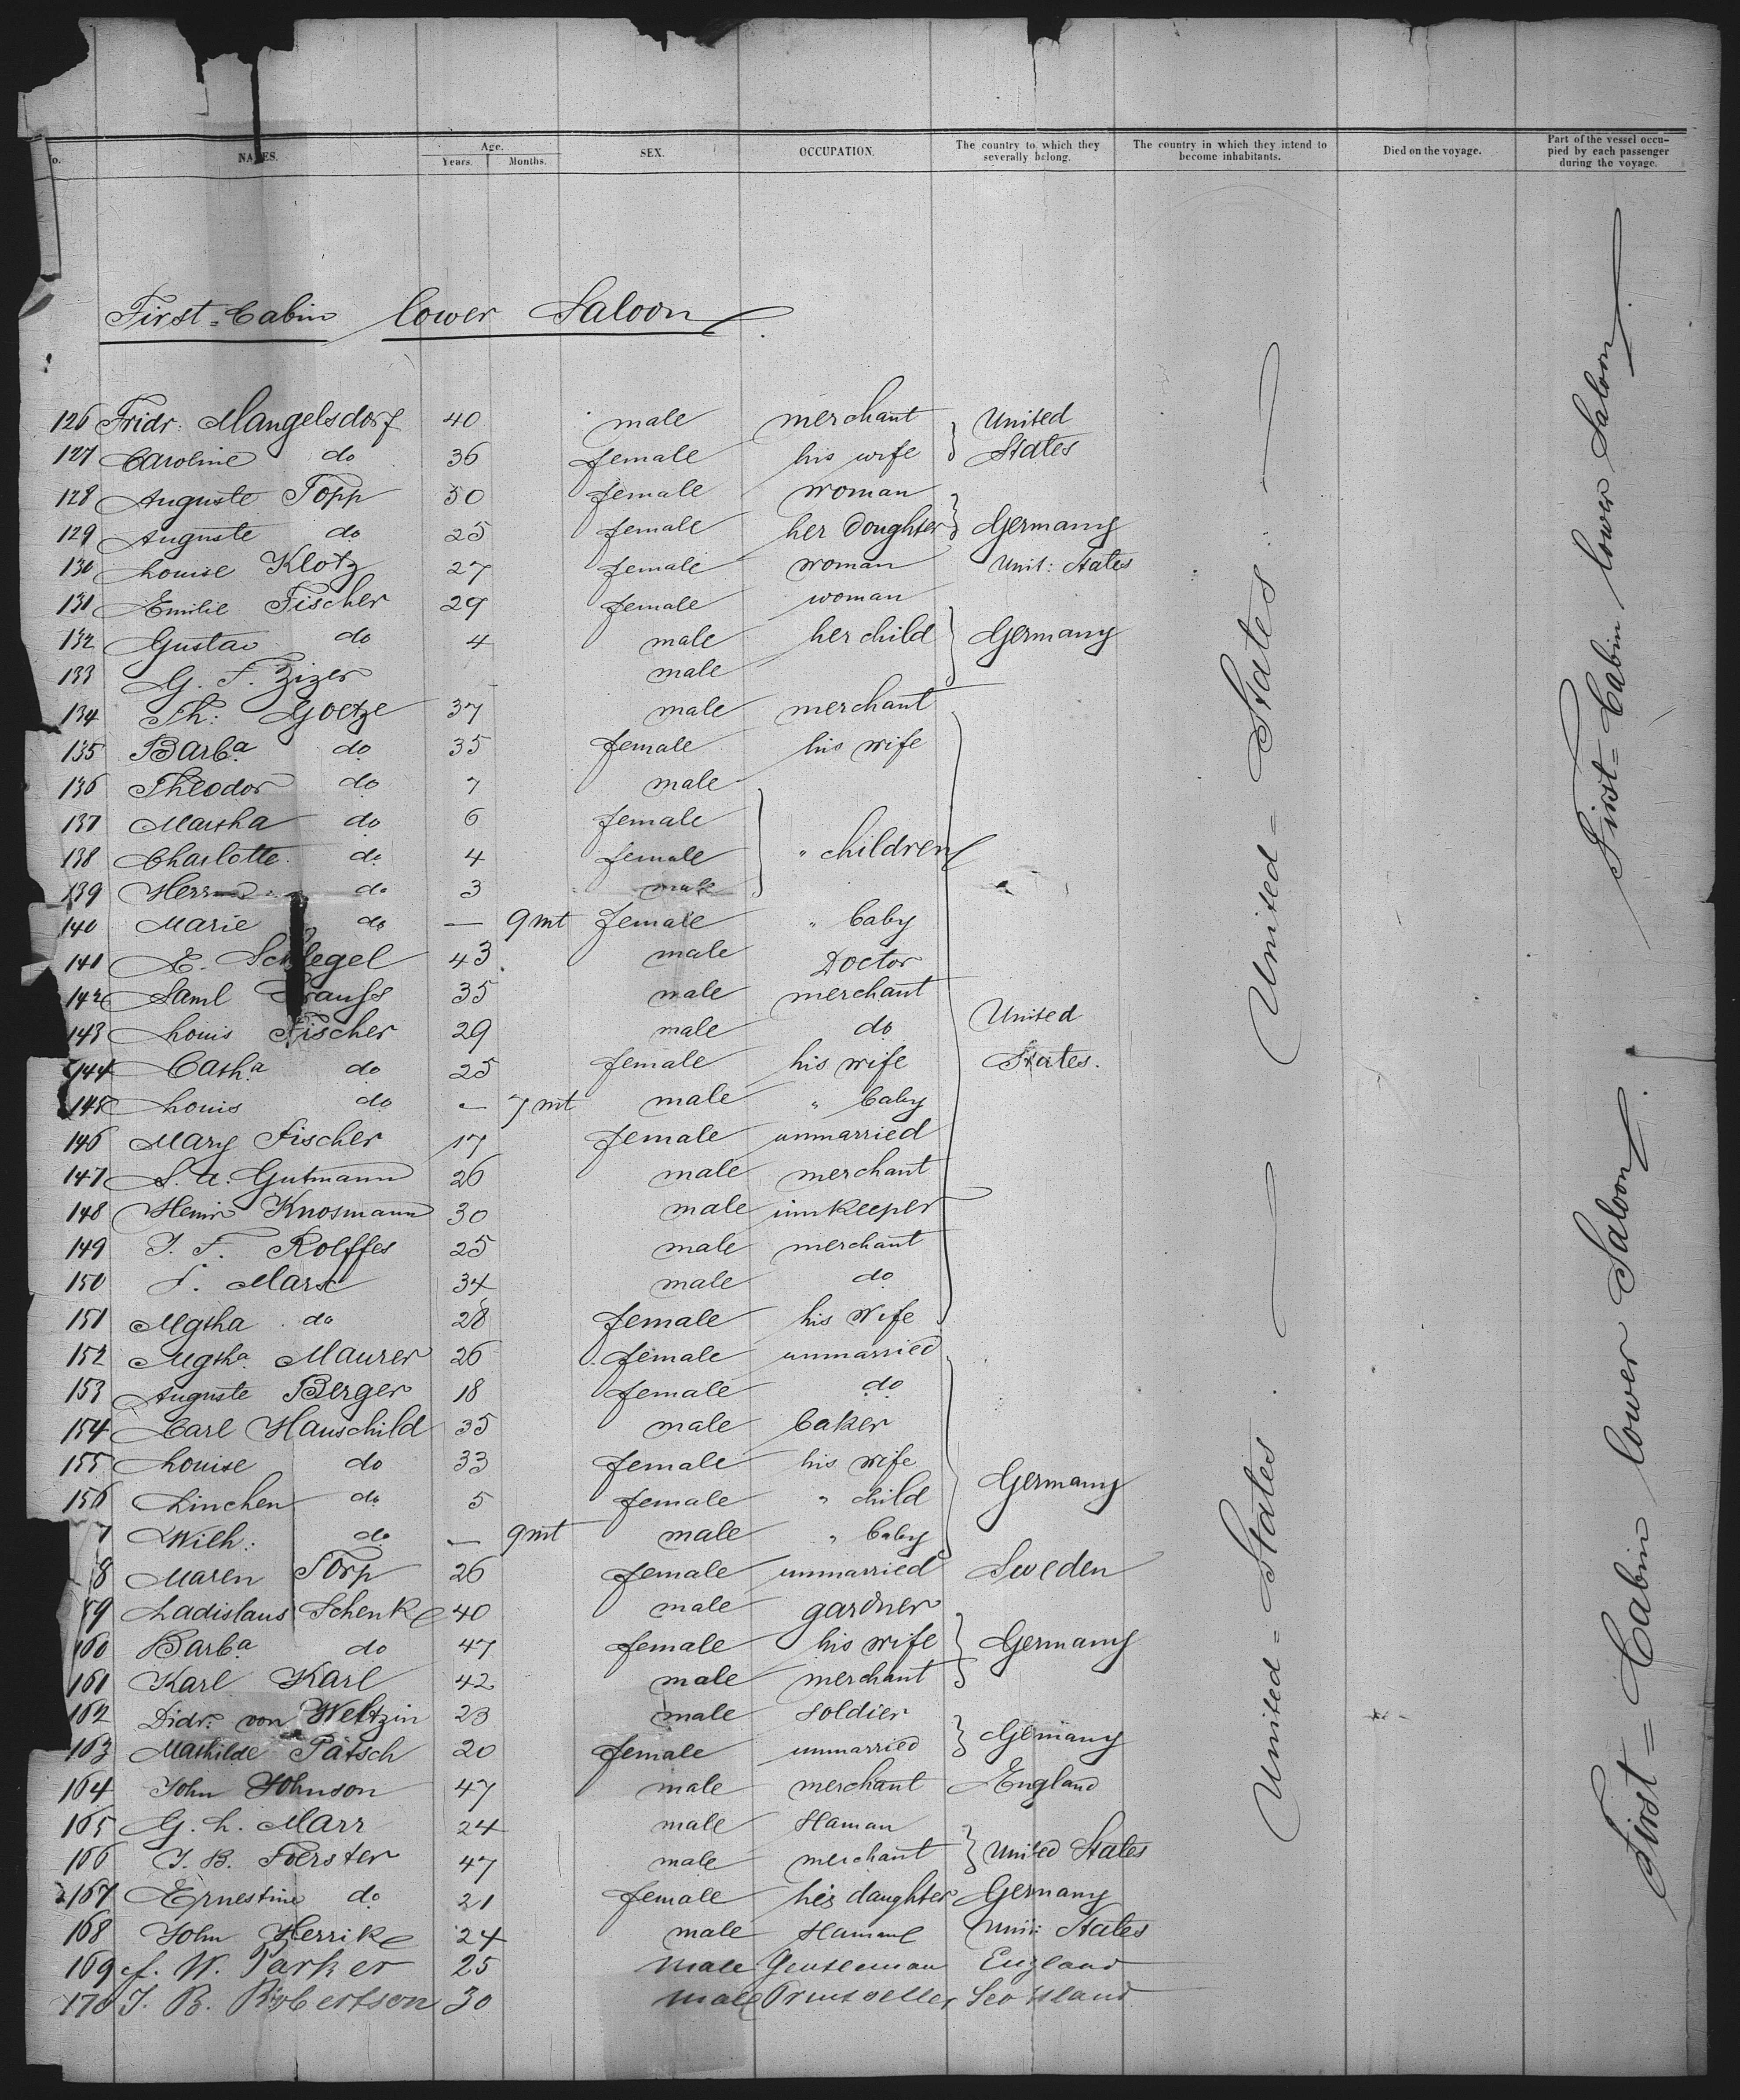 o. NAMES. Age. Years. Months. SEX. OCCUPATION. The country to which they severally belong. The country in which they intend to become inhabitants. Died on the voyage. Part of the vessel occupied by each passenger during the voyage.
First=Cabin lower Saloon.
126 Fridr: Mangelsdorf 40 male merchant United
127 Caroline do 36 female his wife States
128 Auguste Topp 50 female woman
129 Auguste do 25 female her Doughter Germany
130 Louise Klotz 27 female woman Unit: States
131 Emilie Fischer 29 female woman
132 Gustav do 4 male her child Germany
133 G. F. Zizer male
134 Th: Goetze 37 male merchant
135 Barba. do 35 female his wife
136 Theodor do 7 male
137 Martha do 6 female
138 Charlotte do. 4 female " children
139 do 3 male
140 Marie do — 9 mt female " baby
141 E. Schlegel 43 male Doctor
142 Saml 35 male merchant
143 Louis Fischer 29 male do United
144 Catha. do 25 female his wife States.
145 Louis do — 7 mt male " baby
146 Mary Fischer 17 female unmarried
147 S. A. Gutmann 26 male merchant
148 Heinr Knosmann 30 male innkeeper
149 J. F. Rolffes 25 male merchant
150 Marx 34 male do
151 Mgtha do 28 female his wife
152 Mgtha. Maurer 26 female unmarried
153 Auguste Berger 18 female do
154 Carl Hauschild 35 male baker
155 Louise do 33 female his wife
156 Linchen do 5 female " child Germany
7 Wilh: do — 9 mt male " baby
8 Maren Torp 26 female unmarried Sweden
59 Ladislaus Schenk 40 male gardner
160 Barba. do 47 female his wife Germany
161 Karl Karl 42 male merchant
162 Didr: von Weltzin 23 male soldier
163 Mathilde Pätsch 20 female unmarried Germany
164 John Johnson 47 male merchant England
165 G. L. Marr 24 male
166 J. B. Foerster 47 male merchant United States
167 Ernestine do. 21 female his daughter Germany
168 John Herrik 24 male Unit: States
169 W. Parker 25 male Gentleman England
170 J. B. Robertson 30 male Printseller Scotsland
United = States.
United = States.
First = Cabin lower Saloon.
First = Cabin lower Saloon.